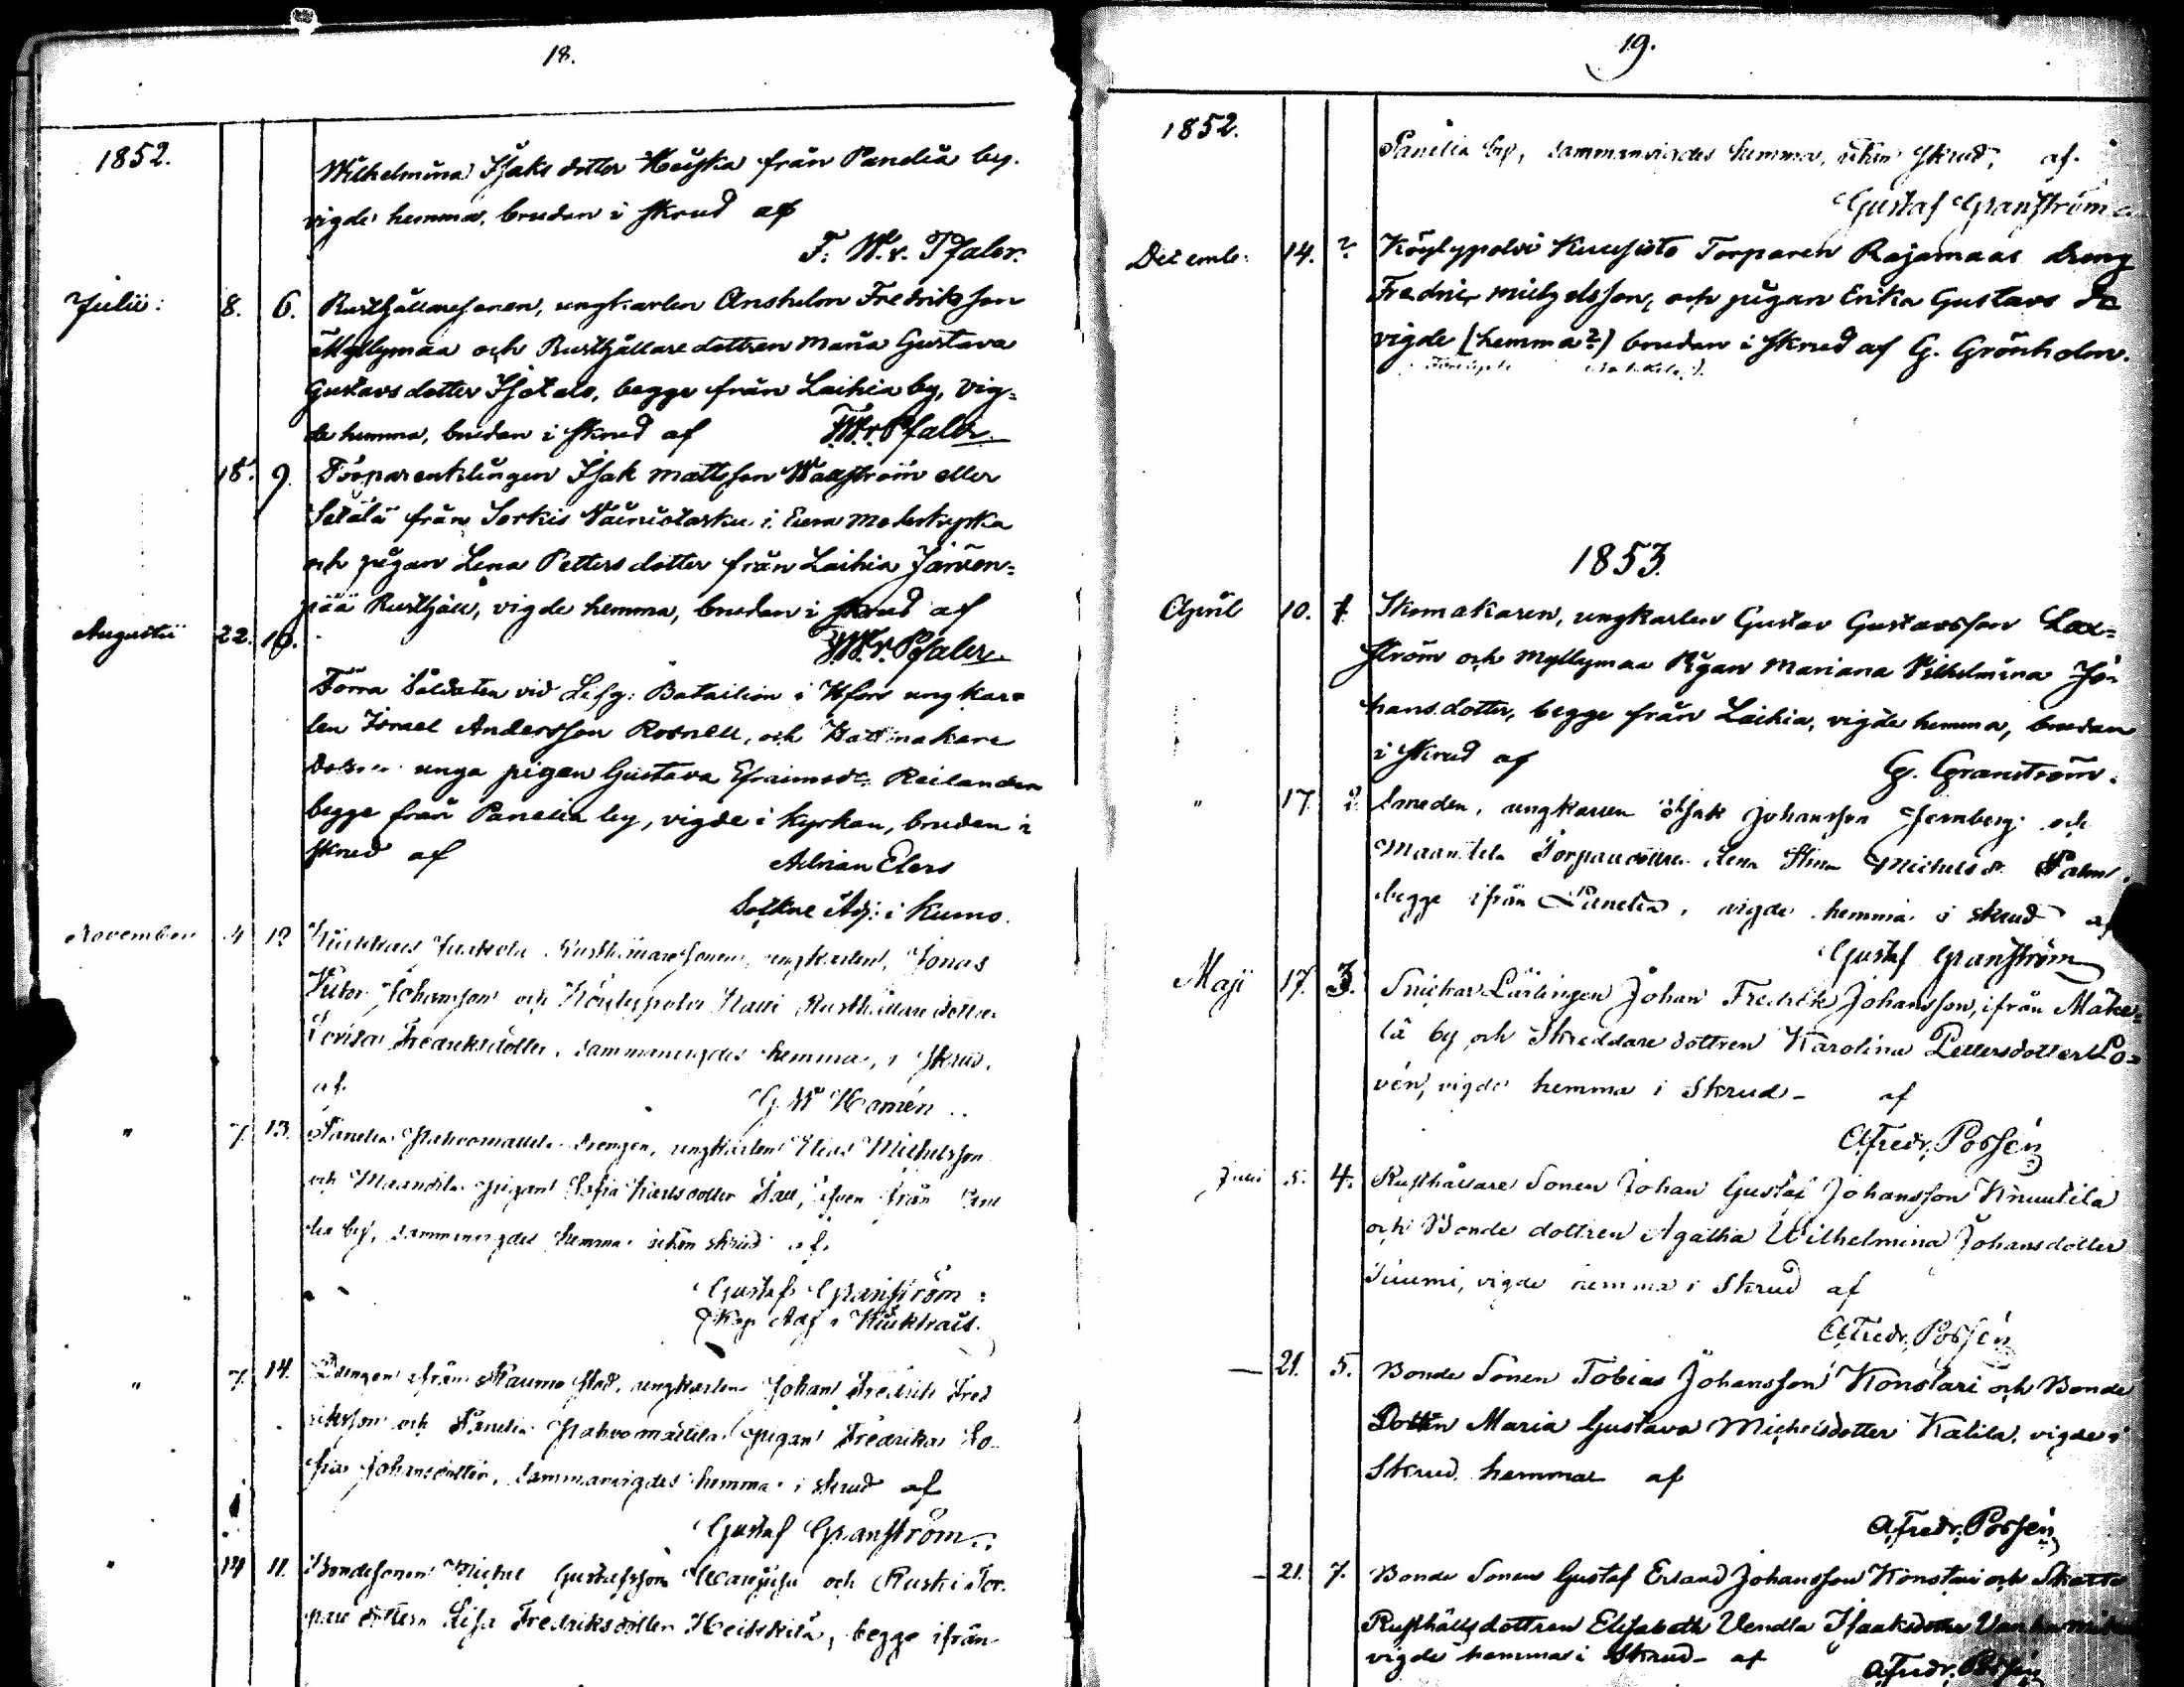 18.
1852.
Wilhelmina Isaks dotter Heiska från Panelia by.
vigde hemma, bruden i skrud af
F. W. v. Pfaler.
Julii: 8. 6. Rusthållaresonen, ungkarlen Anshelm Fredriksson
Myllymaa och Rusthållare dottren Maria Gustava
Gustavsdotter Isotalo, begge från Laihia by, vig=
de hemma, bruden i skrud af F.W.v.Pfaler.
18. 9. Torparenklingen Isak Mattsson Wallström eller
Setälä från Sorkis i Eura Moderkyrka
och pigan Lena Petters dotter från Laihia Järven=
pää Rusthåll, vigde hemma, bruden i skrud af
F.W.v.Pfaler.
Augustii 22. 10.
Förra Soldaten vid Lifg: Bataillon i Hfors ungkar=
len Israel Andersson Rosnell, och Hattmakare
unga pigan Gustava Efraimsdr. Reilander
begge från Panelia by, vigde i Kyrkan, bruden i
skrud af Adrian Elers
Adj: i Kumo.
November 4 12 Kiukais ungkarlen, Jonas
Victor Johansson och Köylypolvi Rusthållare dottren
Lovisa Fredriksdotter, sammanvigdes hemma, i skrud,
af G. W. Homén
" 7. 13. Panelia drengen, ungkarlen Elias Michelsson
och Maantila pigan Sofia Karlsdotter från Pane
lia by, sammanvigdes hemma utan skrud af
Gustaf Granström
Kap Adj i Kiukais.
" 7. 14. Drengen ifrån Raumo stad, ungkarlen Johan Fredrich Fred
riksson och Panelia pigan Fredrika So
fia Johansdotter, sammanvigdes hemma i skrud af
Gustaf Granström
" 14 11. Bondesonen Michel Gustafsson och Tor
pare dottern Lisa Fredriksdotter Heikkilä, begge ifrån
19.
1852.
Panelia by, sammanvigdes hemma, utan skrud, af
Gustaf Granström
Decemb: 14. ? Köylypolvi Kuusisto Torparen Rajamaas dreng
Fredric Michelsson, och pigan Erika Gustavs dr
vigde (hemma?) bruden i skrud af G. Grönholm.
1853.
April 10. 1. Skomakaren, ungkarlen Gustav Gustavsson Lax=
ström och Myllymaa Pigan Mariana Vilhelmina Jo=
hansdotter, begge från Laihia, vigde hemma, bruden
i skrud af G. Granström.
" 17. 2. Smeden, ungkarlen Isak Johansson och
Maantila Torparedottren Lena Stina Michelsdr. Palm
begge ifrån Panelia, vigde hemma i skrud af
Gustaf Granström
Maji 17. 3. Snickar Lärlingen Johan Fredrik Johansson, ifrån Mäke=
lä by och Skreddare dottren Karolina Pettersdotter Lo=
vén, vigde hemma i Skrud- af
A.Fredr. Possén
Juni 5. 4. Rusthållare Sonen Johan Gustaf Johansson Knuutila
och Bonde dottren Agatha Wilhelmina Johansdotter
Tuumi, vigde hemma i Skrud af
A.Fredr. Possén
— 21. 5. Bonde Sonen Tobias Johansson Konstari och Bonde
Dottren Maria Gustava Michelsdotter Kalila, vigde i
Skrud hemma af
A.Fredr. Possén
- 21. 7. Bonde Sonen Gustaf Erland Johansson Konstari och Skatte
Rusthållsdottren Elisabeth Vendla Isaaksdotter
vigde hemma i Skrud- af A.Fredr. Possén